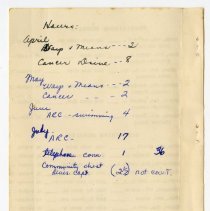 Hours:
April
Ways & Means --- 2
Cancer Drive --- 8
May
Ways & Means --- 2
Cancer --- 2
June
ARC - swimming 4
July
ARC - 17
telephone com 1 36
Community chest (2½) not count.